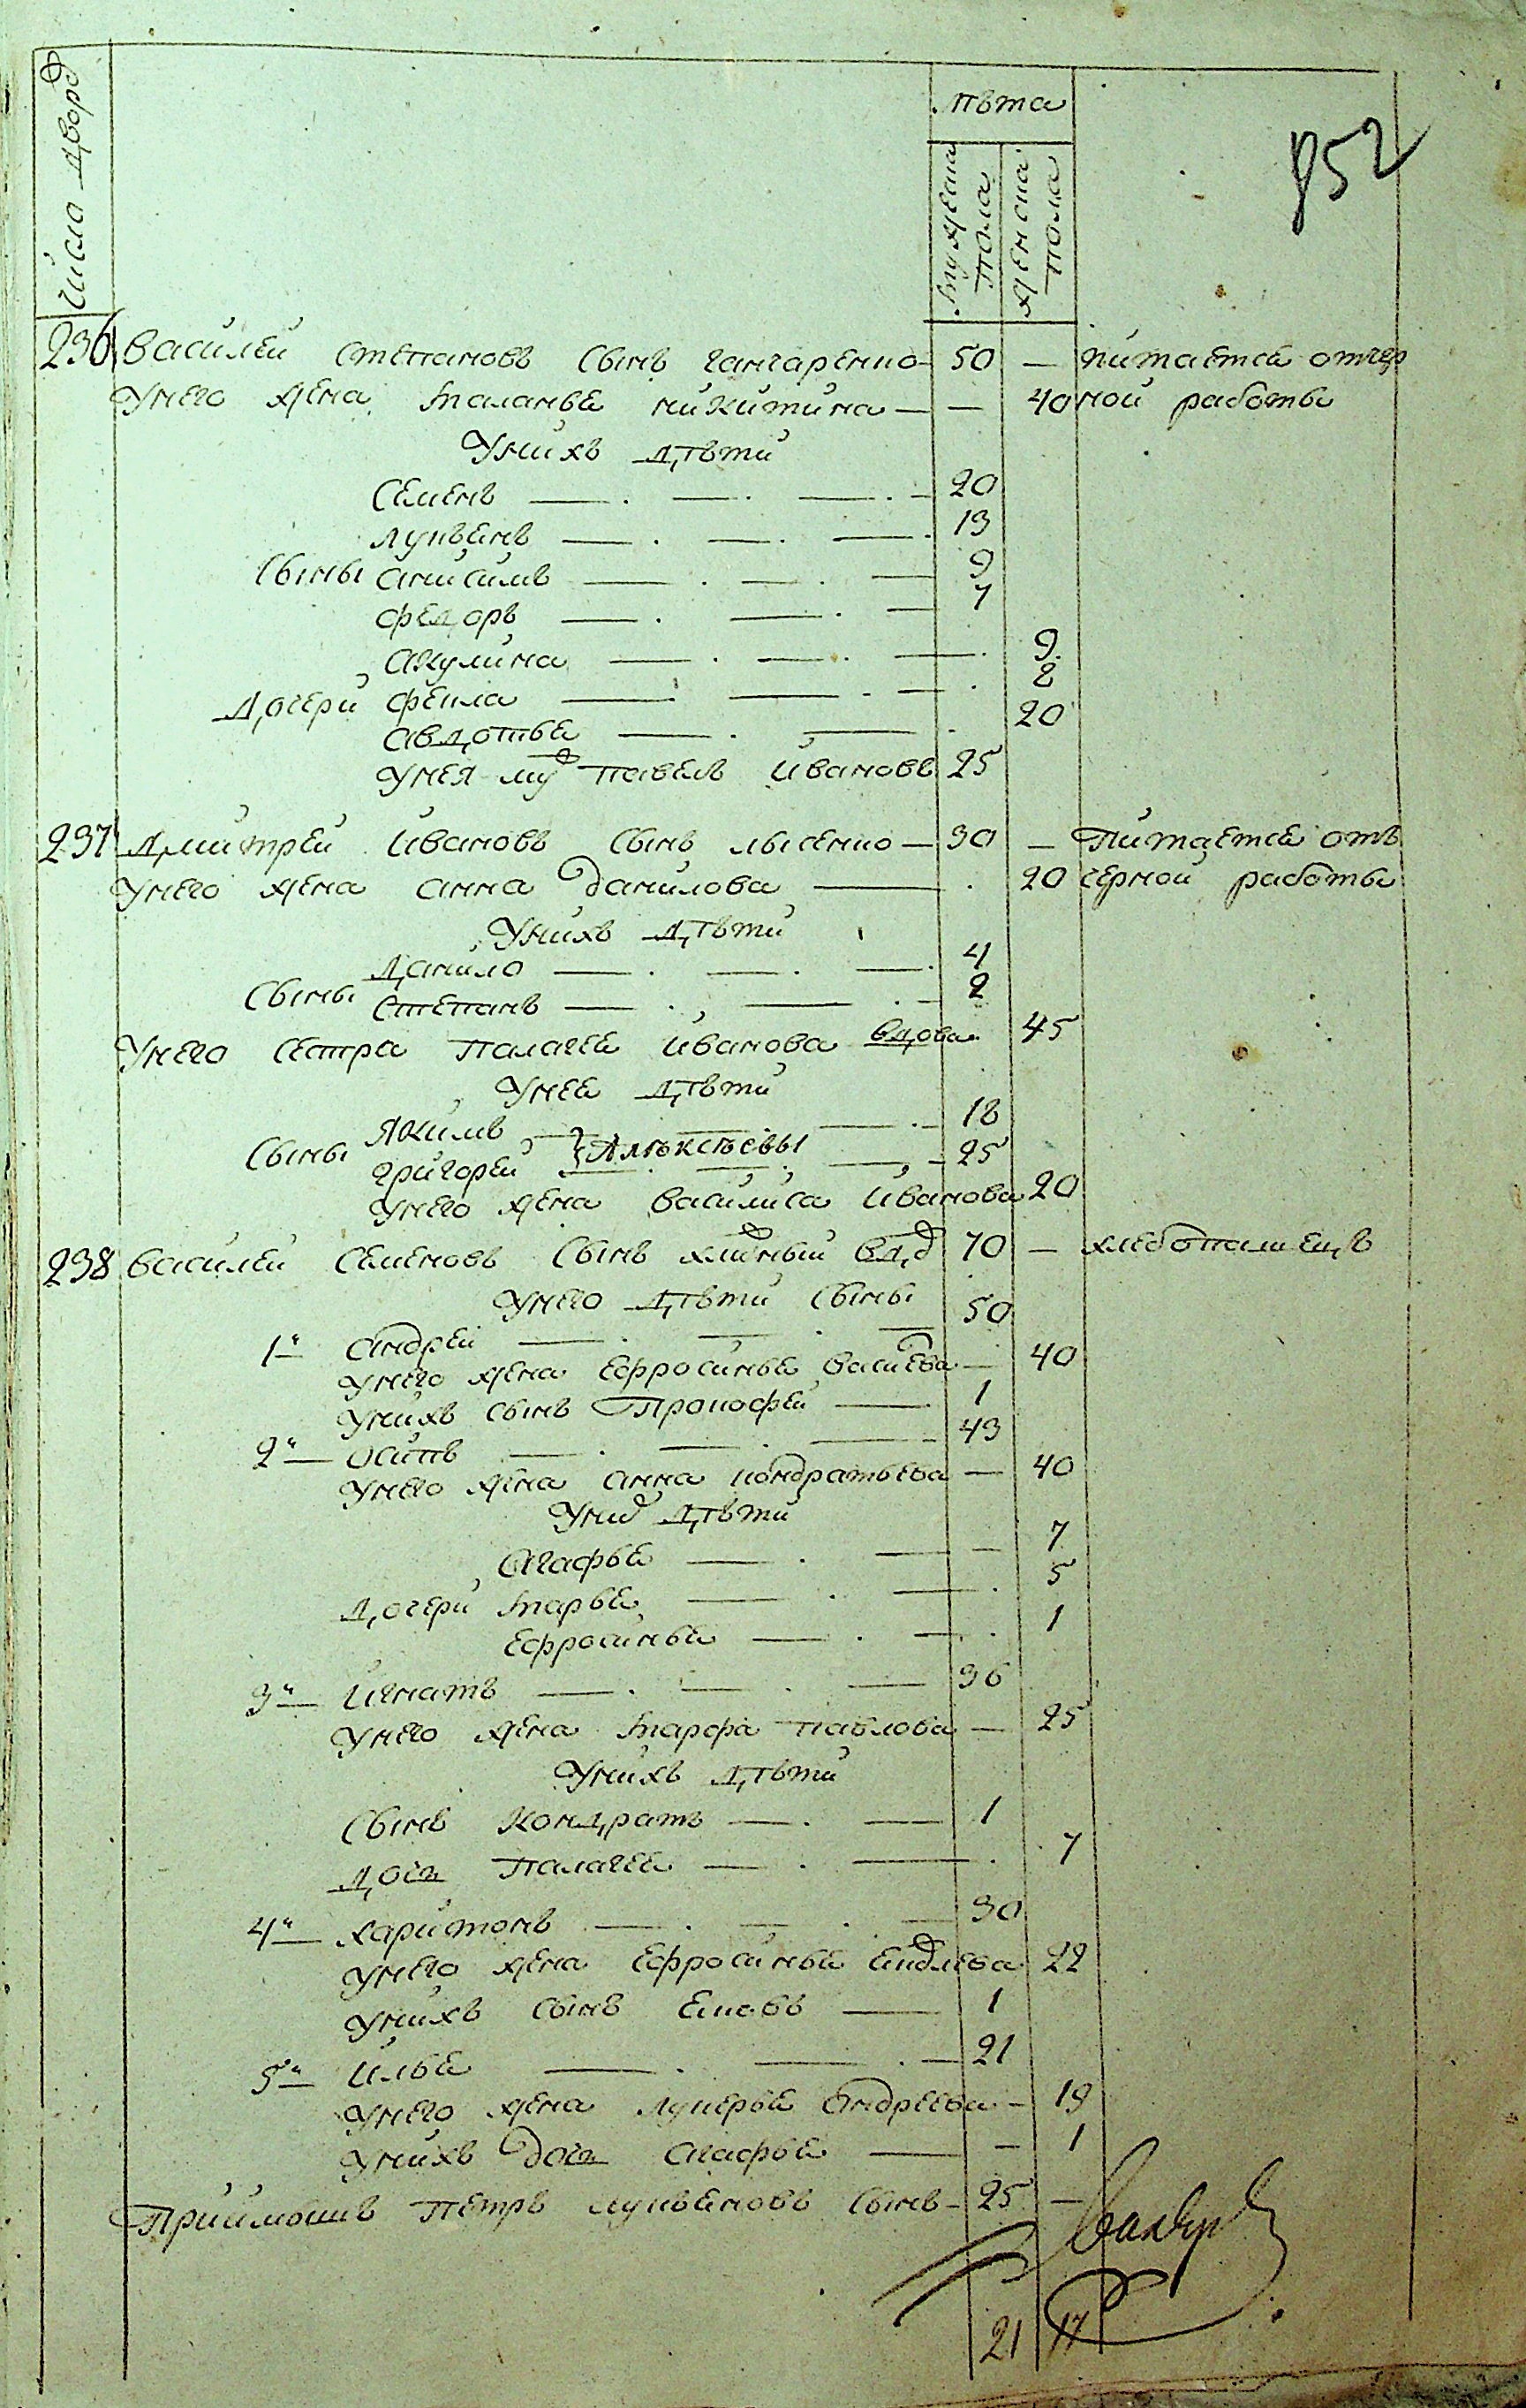 Число двора
лѣта
мужеска пола
женска пола
852
236 Василей Степановъ сынъ Гангаренко 50 — питается отчер
У него жена Маланья Никитина — — 40 ной работы
У нихъ дѣти
Семенъ 20
Лукьянъ 13
Сыны Анисимъ 9
Федоръ 7
Акулина 9
Дочери Фекла 8
Авдотья 20
У нея му Павелъ Ивановъ 25
237 Дмитрей Ивановъ сынъ Лысенко — 30 — Питается отъ
У него жена Анна Данилова 20 черной работы
У нихъ дѣти
Данило 4
Сыны Степанъ 2
У него сестра Палагея Иванова вдова 45
У нее дѣти
Якимъ 18
Сыны } Алѣксѣевы
Григорей 25
У него жена Василиса Иванова 20
238 Василей Семеновъ сынъ вд 70 — хлебопашецъ
У него дѣти сыны
1й Андрей 50
У него жена Ефросинья Василева — 40
У нихъ сынъ Прокофей 1
2й Осипъ 43
У него жена Анна Кондратьева — 40
У них дѣти
Агафья 7
Дочери Марья 5
Ефросинья 1
3й Игнатъ 36
У него жена Марфа Павлова — 25
У нихъ дѣти
Сынъ Кондратъ 1
Дочь Палагея 7
4й Харитонъ 30
У него жена Ефросинья 22
У нихъ сынъ Яковъ 1
5й Илья 21
У него жена Лукерья Андреева — 19
У нихъ дочь Агафья — 1
Приймышъ Петръ Лукьяновъ сынъ — 25 —
21 17